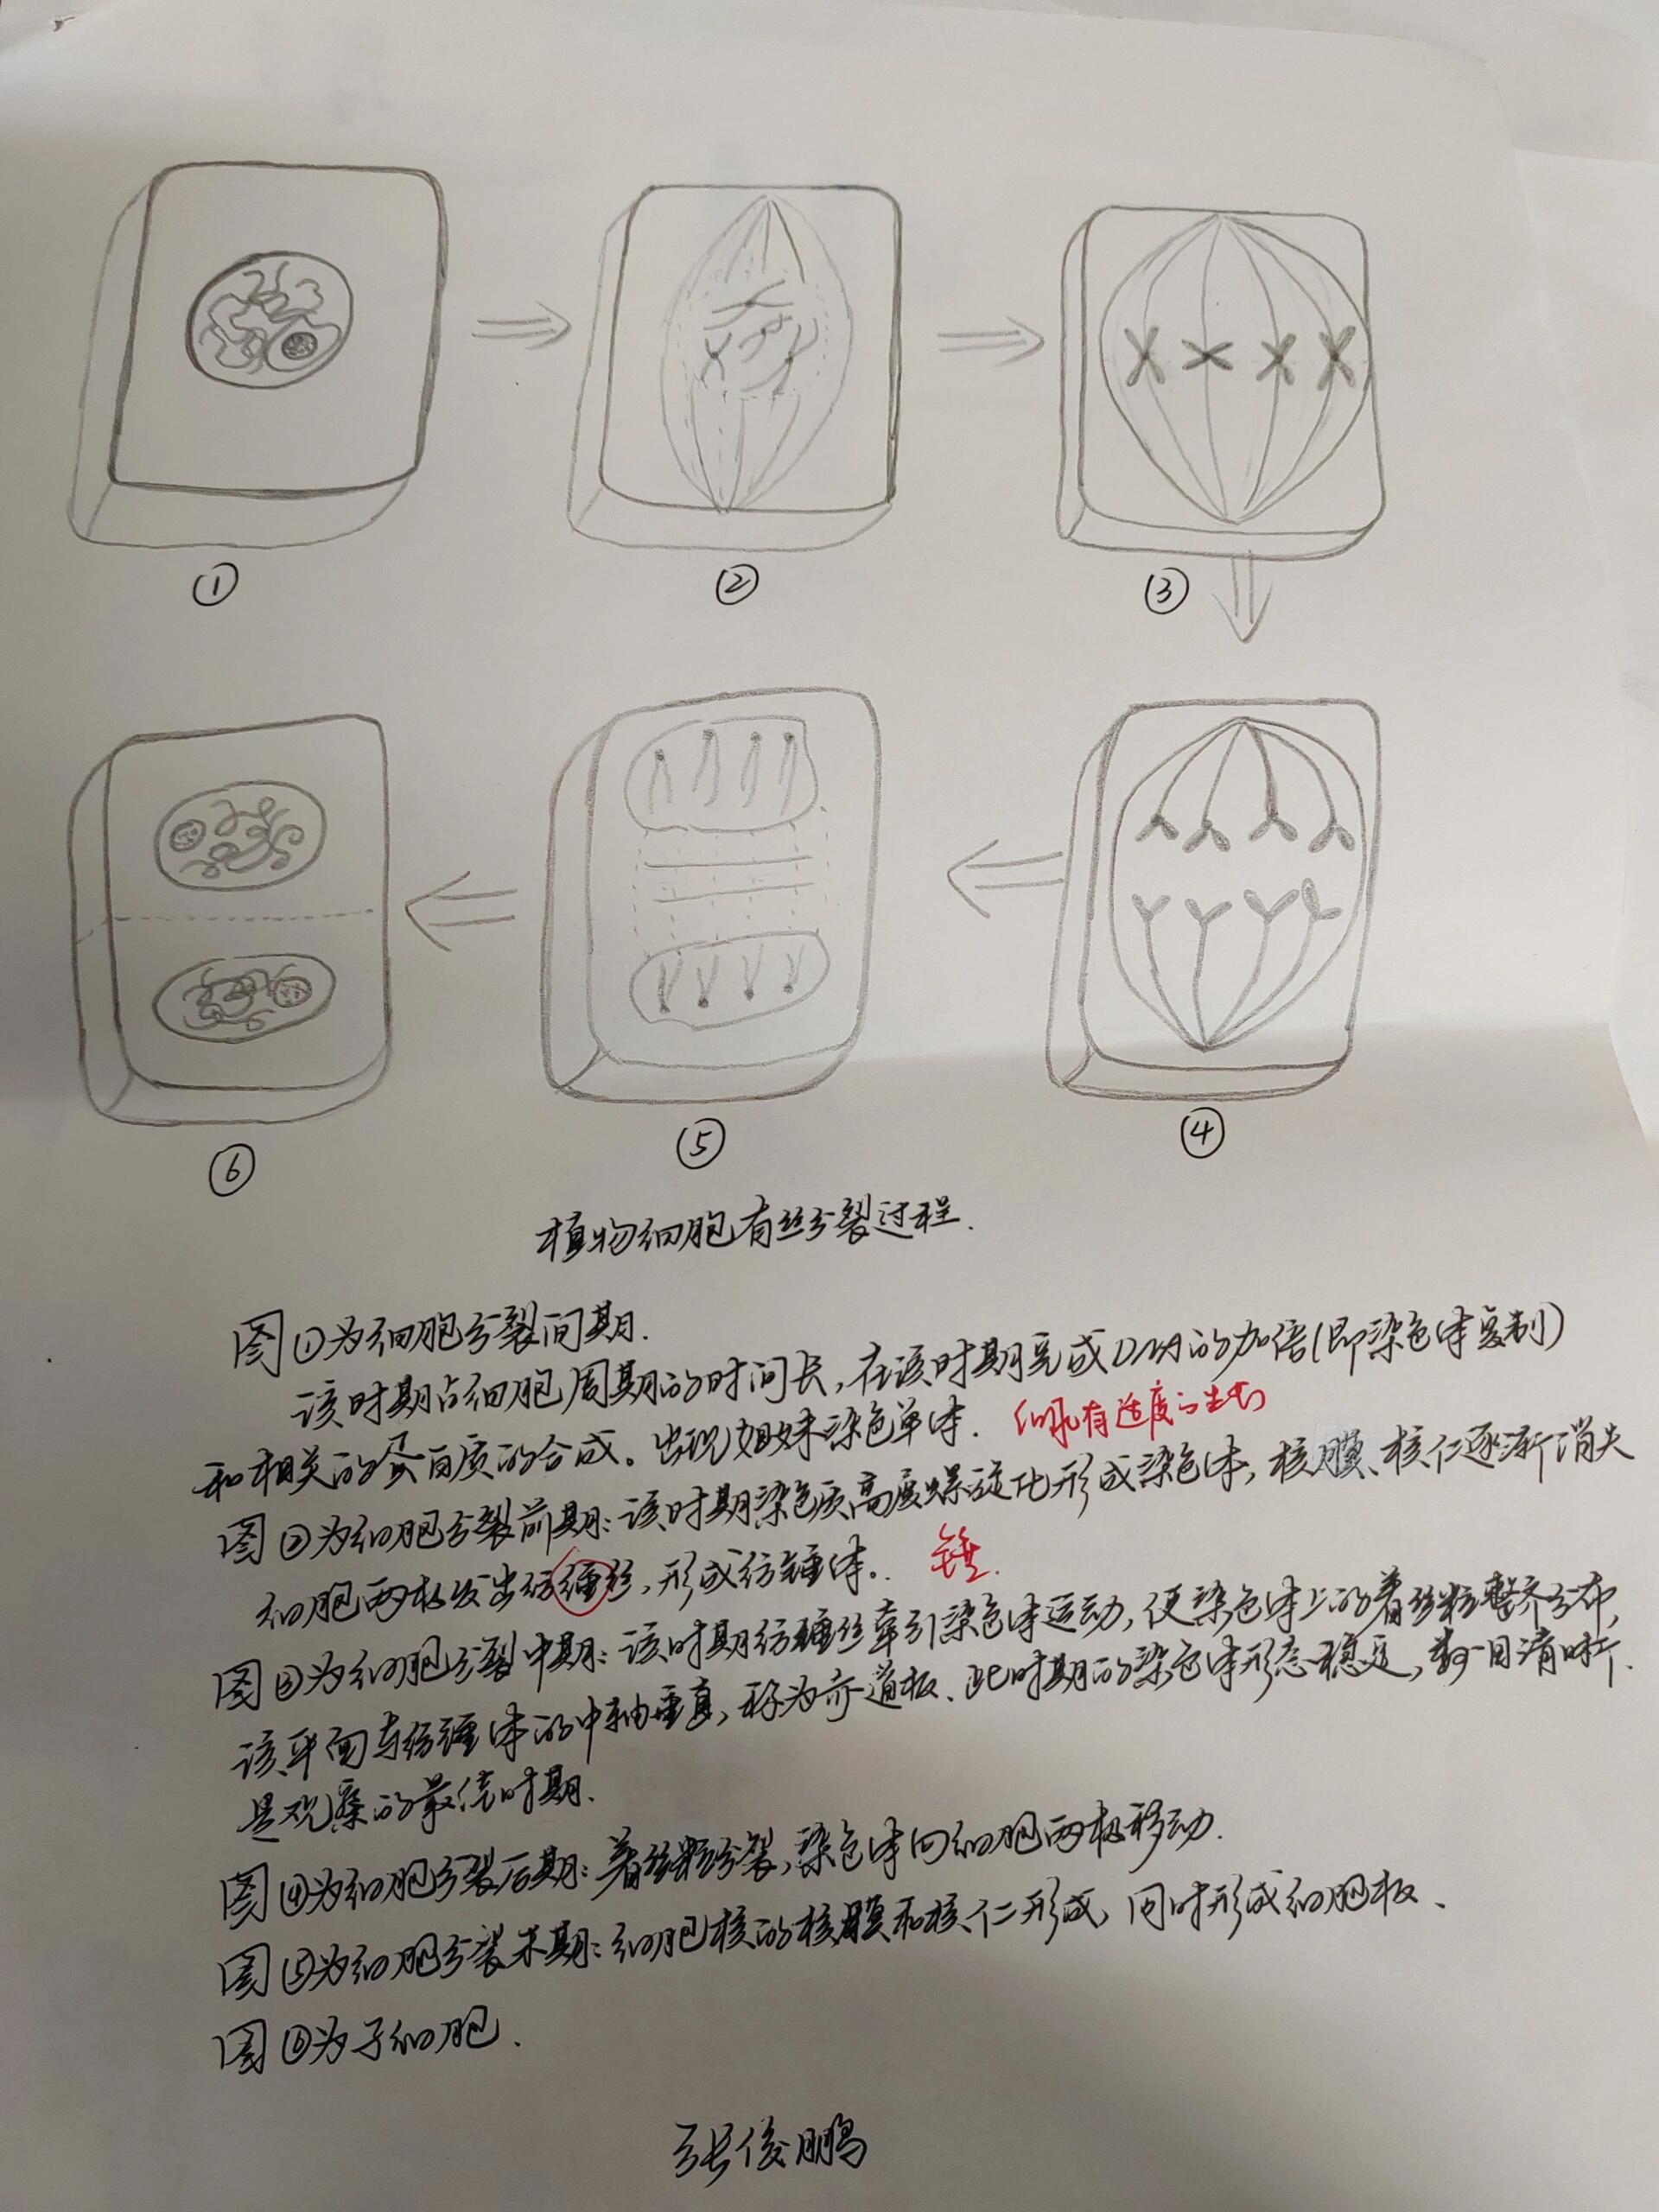 ①
②
③
⑥
⑤
④
植物细胞有丝分裂过程.
图①为细胞分裂间期.
该时期占细胞周期的时间长,在该时期完成DNA的加倍(即染色体复制)
和相关的蛋白质的合成。出现姐妹染色单体. 细胞有适度的生长
图②为细胞分裂前期:该时期染色质高度螺旋化形成染色体,核膜、核仁逐渐消失
细胞两极发出纺缍丝,形成纺锤体. 锤.
图③为细胞分裂中期:该时期纺缍丝牵引染色体运动,使染色体上的着丝粒整齐分布,
该平面与纺缍体的中轴垂直,称为赤道板、此时期的染色体形态稳定,数目清晰.
是观察的最佳时期.
图④为细胞分裂后期:着丝粒分裂,染色体向细胞两极移动.
图⑤为细胞分裂末期:细胞核的核膜和核仁形成,同时形成细胞板、
图⑥为子细胞.
张俊鹏